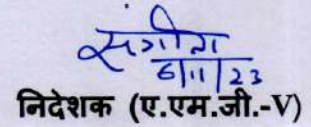 संगीता
6/11/23
निदेशक (ए.एम.जी.-V)